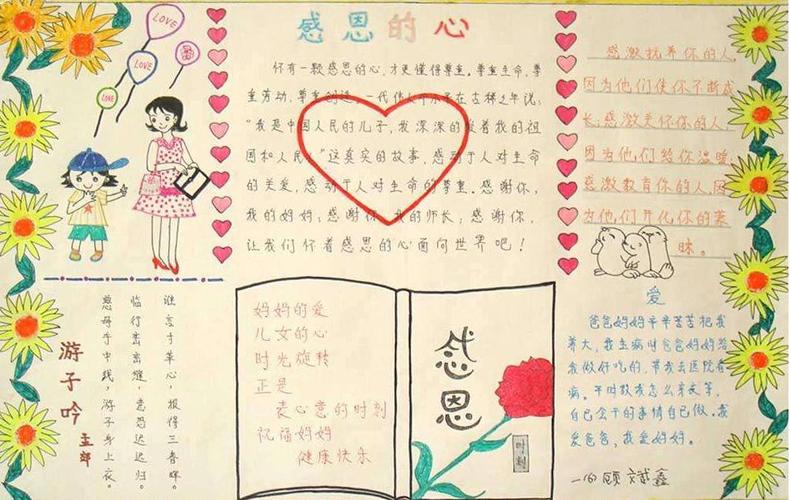 LOVE
LOVE
LOVE
感恩的心
你有一颗感恩的心,才更懂得尊重。尊重生命,尊
重劳动,尊重创造。一代伟人邓小平在古稀之年说:
“我是中国人民的儿子,我深深的爱着我的祖
国和人民。”这真实的故事,感动于人对生命
的关爱,感动于人对生命的尊重。感谢你,
我的妈妈;感谢你,我的师长;感谢你,
让我们怀着感恩的心面向世界吧!
感激抚养你的人,
因为他们使你不断成
长;感激关怀你的人,
因为他们给你温暖;
感激教育你的人,因
为他们开化你的蒙
昧。
游子吟
孟郊
慈母手中线,游子身上衣。
临行密密缝,意恐迟迟归。
谁言寸草心,报得三春晖。
妈妈的爱
儿女的心
时光旋转
正是
表心意的时刻
祝福妈妈
健康快乐
感恩
时刻
爱
爸爸妈妈辛辛苦苦把我
养大,我生病时爸爸妈妈给
我做好吃的,带我去医院看
病。平时教我怎么穿衣等,
自己会干的事情自己做。我
爱爸爸,我爱妈妈。
一(6)顾斌鑫